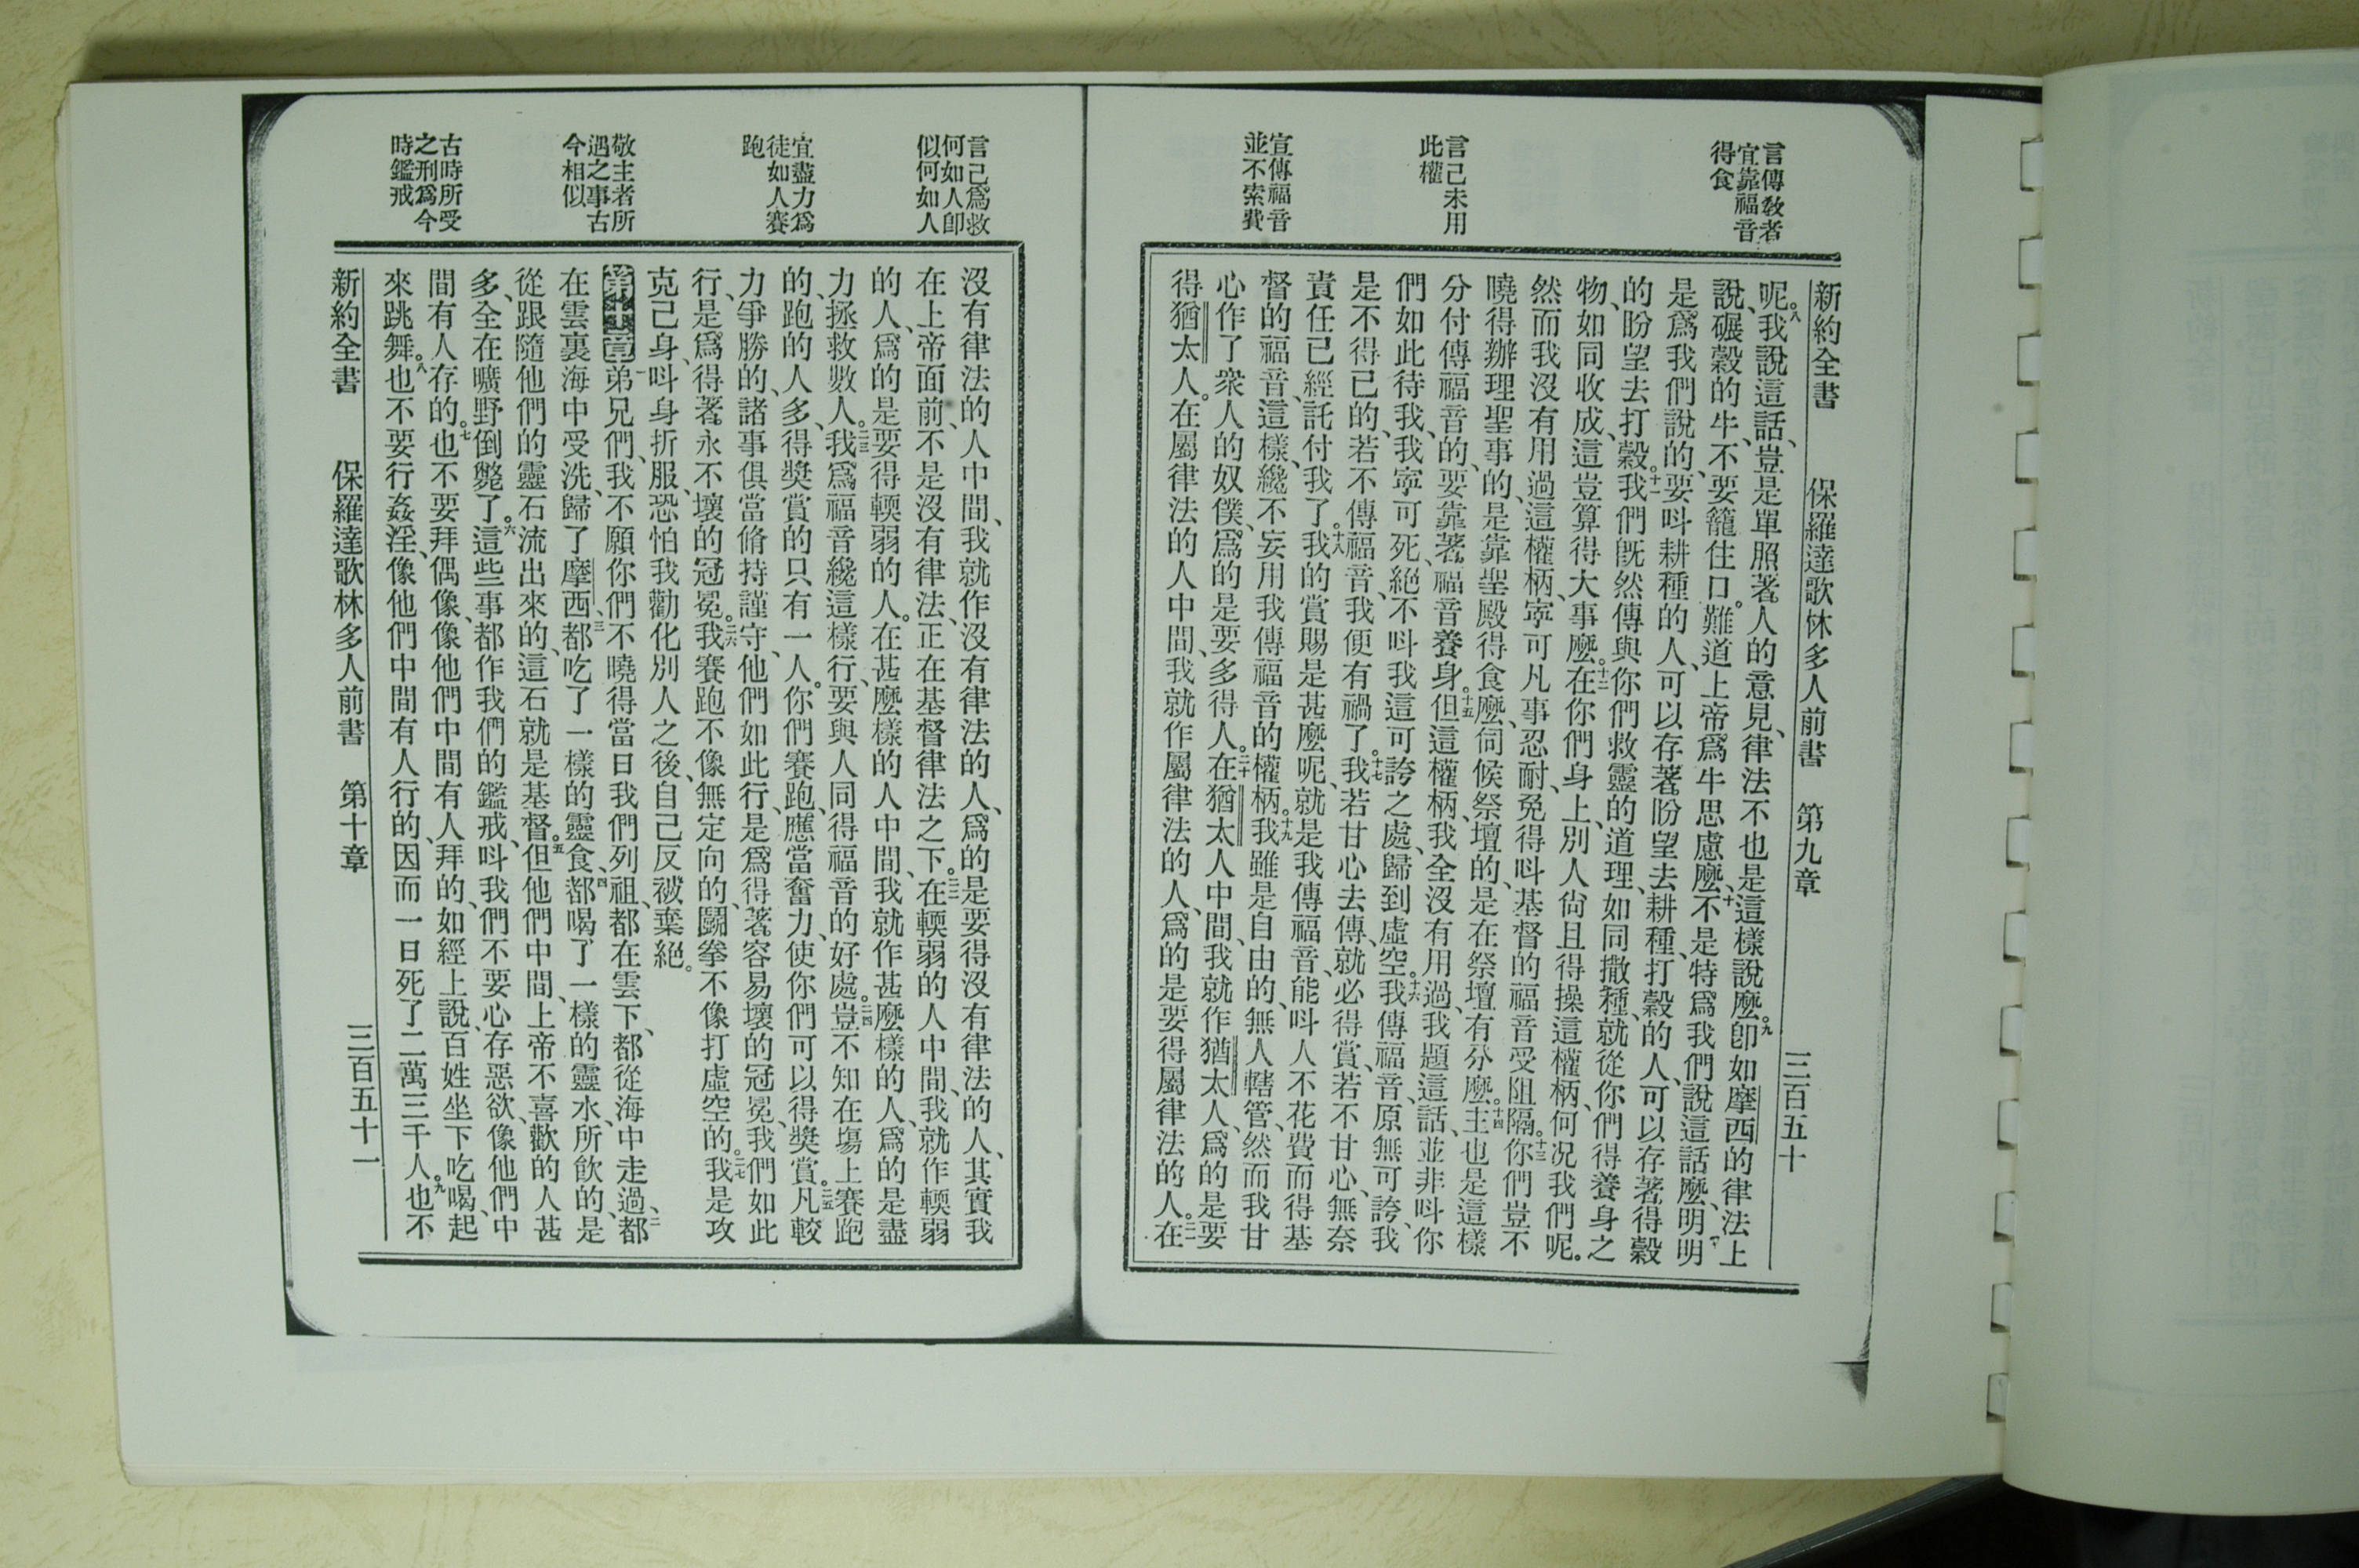 新約全書　保羅達歌林多人前書　第九章　三百五十
言傳敎者
宜靠福音
得食
言己未用
此權
宣傳福音
並不索費
呢。八我說這話、豈是單照著人的意見、律法不也是這樣說麼。九卽如摩西的律法上
說、碾穀的牛、不要籠住口。難道上帝爲牛思慮麼、十不是特爲我們說這話麼、明明
是爲我們說的、要呌耕種的人、可以存著盼望去耕種、打穀的人、可以存著得穀
的盼望去打穀。十一我們旣然傳與你們救靈的道理、如同撒種、就從你們得養身之
物、如同收成、這豈算得大事麼。十二在你們身上、別人尙且得操這權柄、何况我們呢。
然而我沒有用過這權柄、寧可凡事忍耐、免得呌基督的福音受阻隔。十三你們豈不
曉得辦理聖事的、是靠聖殿得食麼、伺候祭壇的、是在祭壇有分麼。十四主也是這樣
分付傳福音的、要靠著福音養身。十五但這權柄、我全沒有用過、我題這話、並非呌你
們如此待我、我寧可死、絕不呌我這可誇之處、歸到虛空。十六我傳福音、原無可誇、我
是不得已的、若不傳福音、我便有禍了。十七我若甘心去傳、就必得賞、若不甘心、無奈
責任已經託付我了。十八我的賞賜是甚麼呢、就是我傳福音、能呌人不花費而得基
督的福音、這樣、纔不妄用我傳福音的權柄。十九我雖是自由的、無人轄管、然而我甘
心作了衆人的奴僕、爲的是要多得人。二十在猶太人中間、我就作猶太人、爲的是要
得猶太人。在屬律法的人中間、我就作屬律法的人、爲的是要得屬律法的人。二一在
言己爲救
何如人卽
似何如人
宜盡力爲
徒如人賽
跑
敬主者所
遇之事古
今相似
古時所受
之刑爲今
時鑑戒
沒有律法的人中間、我就作沒有律法的人、爲的是要得沒有律法的人、其實我
在上帝面前、不是沒有律法、正在基督律法之下。二二在輭弱的人中間、我就作輭弱
的人、爲的是要得輭弱的人。在甚麼樣的人中間、我就作甚麼樣的人、爲的是盡
力拯救數人。二三我爲福音纔這樣行、要與人同得福音的好處。二四豈不知在塲上賽跑
的、跑的人多、得獎賞的只有一人。你們賽跑、應當奮力、使你們可以得獎賞。二五凡較
力爭勝的、諸事俱當脩持謹守、他們如此行、是爲得著容易壞的冠冕、我們如此
行、是爲得著永不壞的冠冕。二六我賽跑不像無定向的、鬭拳不像打虛空的。二七我是攻
克己身、呌身折服、恐怕我勸化別人之後、自己反被棄絕。
第十章一弟兄們、我不願你們不曉得當日我們列祖、都在雲下、都從海中走過、二都
在雲裏海中受洗、歸了摩西、三都吃了一樣的靈食、四都喝了一樣的靈水、所飮的、是
從跟隨他們的靈石流出來的、這石就是基督。五但他們中間、上帝不喜歡的人甚
多、全在曠野倒斃了。六這些事、都作我們的鑑戒、呌我們不要心存惡欲、像他們中
間有人存的。七也不要拜偶像、像他們中間有人拜的、如經上說、百姓坐下吃喝、起
來跳舞。八也不要行姦淫、像他們中間有人行的、因而一日死了二萬三千人。九也不
新約全書　保羅達歌林多人前書　第十章　三百五十一